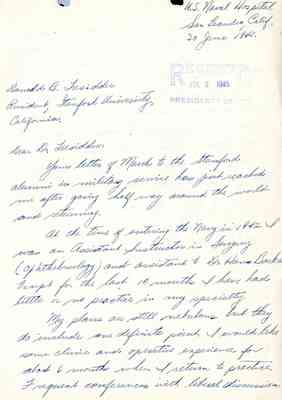 U.S. Naval Hospital
San Leandro, Calif.
30 June 1945.
RECEIVED
JUL 2 1945
PRESIDENT'S
Donald B. Tresidder
President, Stanford University,
California.
Dear Dr. Tresidder:
Your letter of March to the Stanford
alumni in military service has just reached
me after going half way around the world
and returning.
At the time of entering the Navy in 1942 I
was an Assistant Instructor in Surgery
(Ophthalmology) and assistant to Dr Hans Barkan
for the last 10 months I have had
little or no practice in my specialty.
My plans are still nebulous but they
do include one definite point, I would like
some clinic and operative experience for
about 6 months when I return to practice.
Frequent conferences with liberal discussion